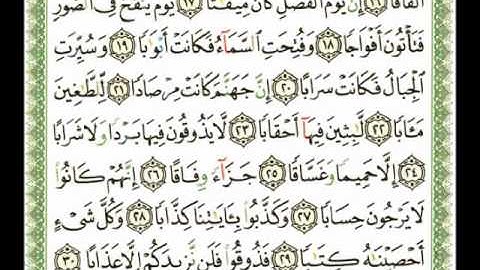 أَلْفَافًا ١٦ إِنَّ يَوْمَ ٱلْفَصْلِ كَانَ مِيقَٰتًا ١٧ يَوْمَ يُنفَخُ فِى ٱلصُّورِ
فَتَأْتُونَ أَفْوَاجًا ١٨ وَفُتِحَتِ ٱلسَّمَآءُ فَكَانَتْ أَبْوَٰبًا ١٩ وَسُيِّرَتِ
ٱلْجِبَالُ فَكَانَتْ سَرَابًا ٢٠ إِنَّ جَهَنَّمَ كَانَتْ مِرْصَادًا ٢١ لِّلطَّٰغِينَ
مَـَٔابًا ٢٢ لَّٰبِثِينَ فِيهَآ أَحْقَابًا ٢٣ لَّا يَذُوقُونَ فِيهَا بَرْدًا وَلَا شَرَابًا
٢٤ إِلَّا حَمِيمًا وَغَسَّاقًا ٢٥ جَزَآءً وِفَاقًا ٢٦ إِنَّهُمْ كَانُوا۟
لَا يَرْجُونَ حِسَابًا ٢٧ وَكَذَّبُوا۟ بِـَٔايَٰتِنَا كِذَّابًا ٢٨ وَكُلَّ شَىْءٍ
أَحْصَيْنَٰهُ كِتَٰبًا ٢٩ فَذُوقُوا۟ فَلَن نَّزِيدَكُمْ إِلَّا عَذَابًا ٣٠